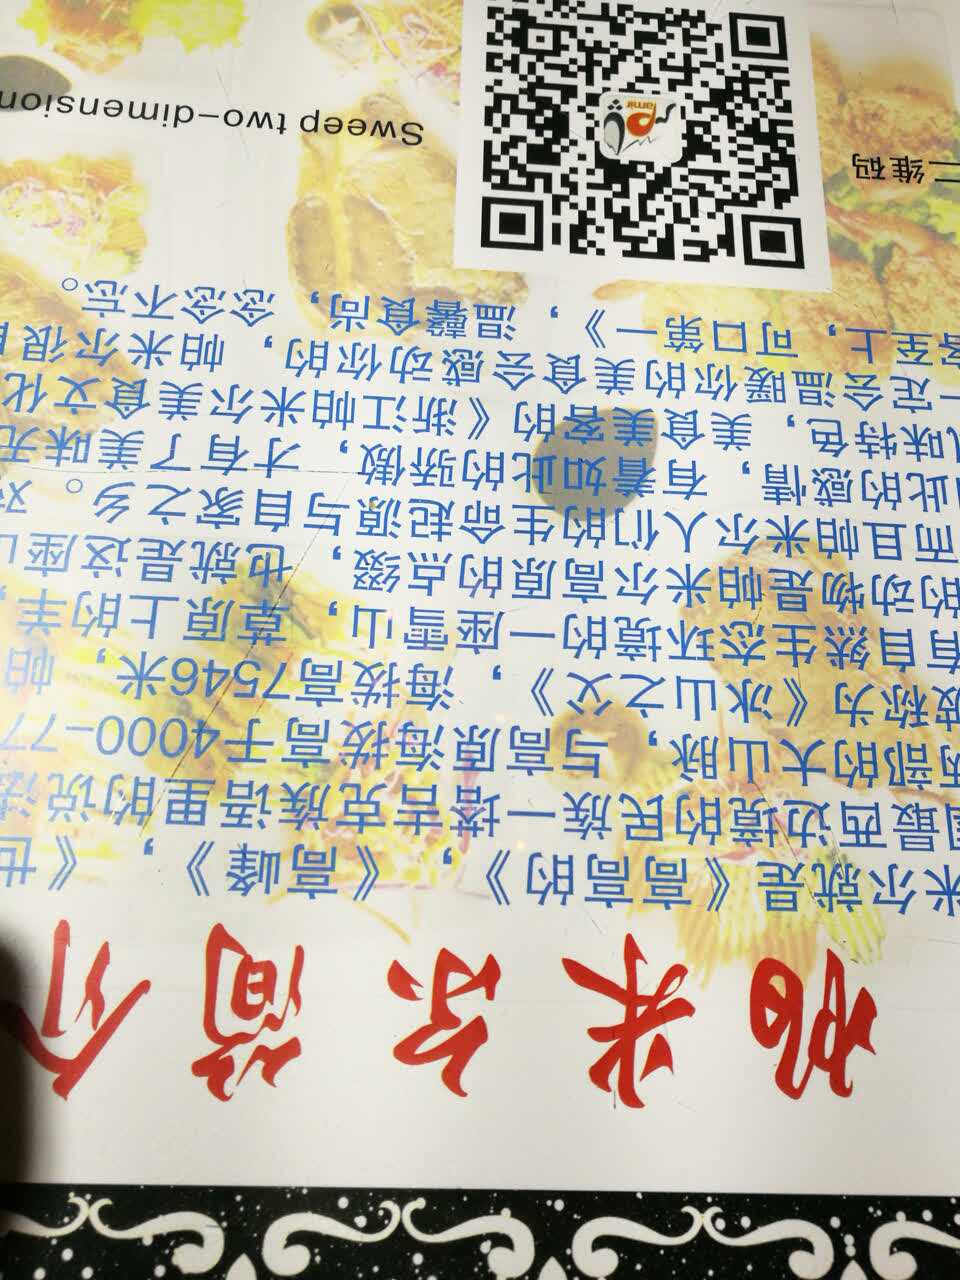 帕米尔简介
米尔就是《高高的》，《高峰》，《世
国最西边境的民族一塔吉克族语里的说法
西部的大山脉，与高原海拔高于4000-77
被称为《冰山之父》，海拔高7546米，帕
有自然生态环境的一座雪山，草原上的羊，
的动物是帕米尔高原的点缀，也就是这座山
而且帕米尔人们的生命起源与自家之乡。对
此的感情，有着如此的骄傲，才有了美味无
味特色，美食美客的《浙江帕米尔美食文化
一定会温暖你的美食会感动你的，帕米尔很的
客至上，可口第一》，温馨食尚，念念不忘。
二维码
Sweep two-dimension
Pamir